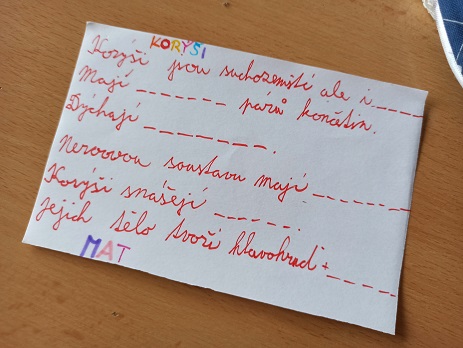 KORÝŠI
Korýši jsou suchozemští ale i _ _ _ _
Mají _ _ _ _ _ _ _ párů končetin.
Dýchají _ _ _ _ _ _ _ .
Nervovou soustavu mají _ _ _ _ _ _ _
Korýši snášejí _ _ _ _ _ _ .
Jejich tělo tvoří hlavohruď + _ _ _ _ _
MAT